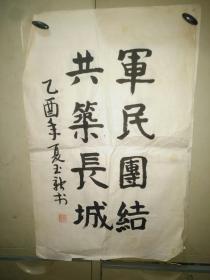 軍民團結
共築長城
乙酉年夏玉新书